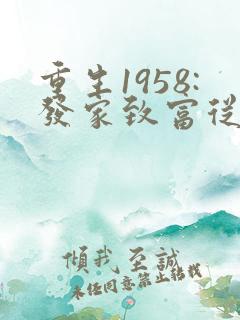 重生1958:
發家致富從
傾我至誠
未經同意禁止轉載